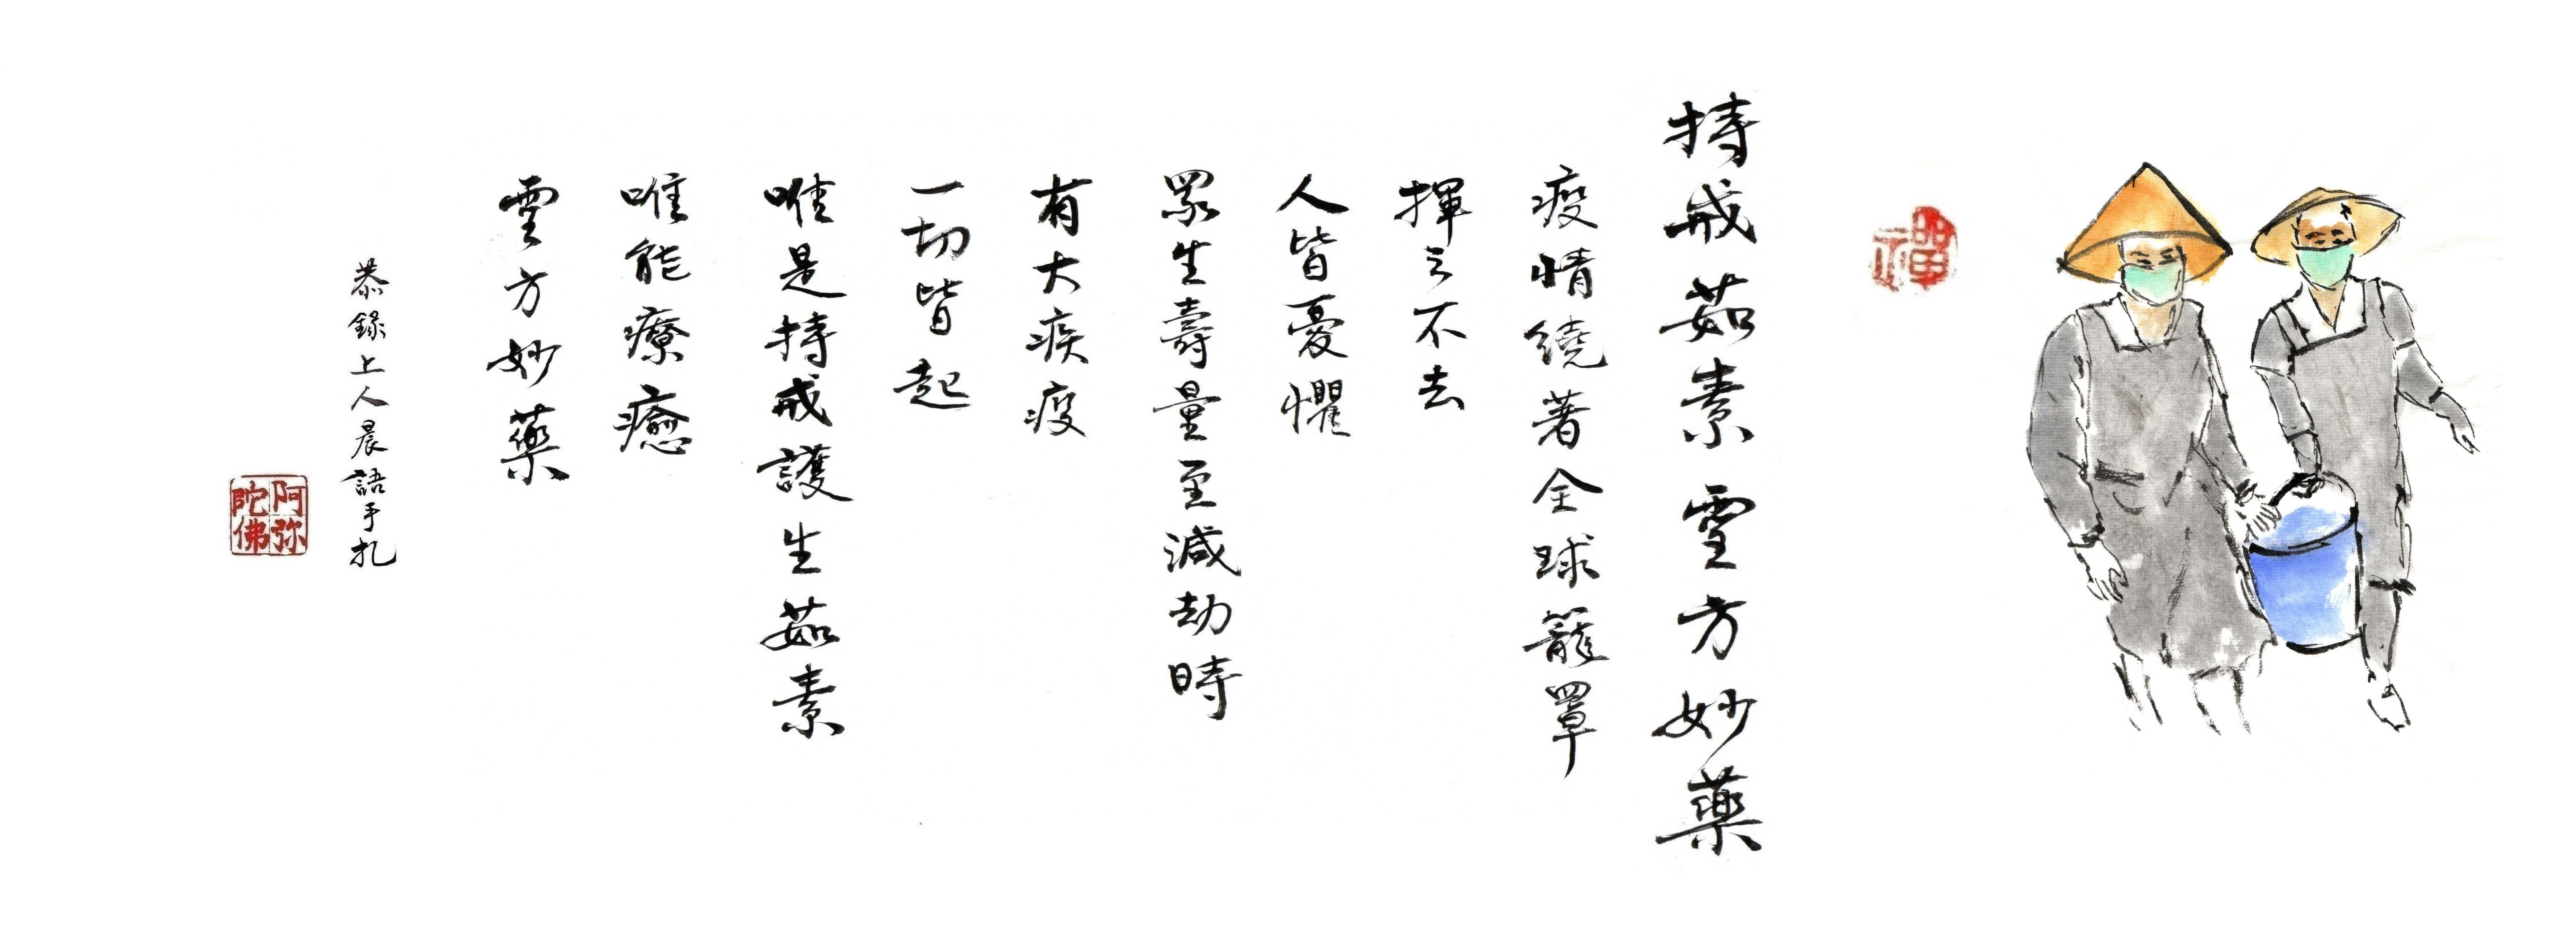 禪
持戒茹素靈方妙藥
疫情繞著全球籠罩
揮之不去
人皆憂懼
眾生壽量至減劫時
有大疾疫
一切皆起
唯是持戒護生茹素
唯能療癒
靈方妙藥
恭錄上人晨語手札
阿弥
陀佛